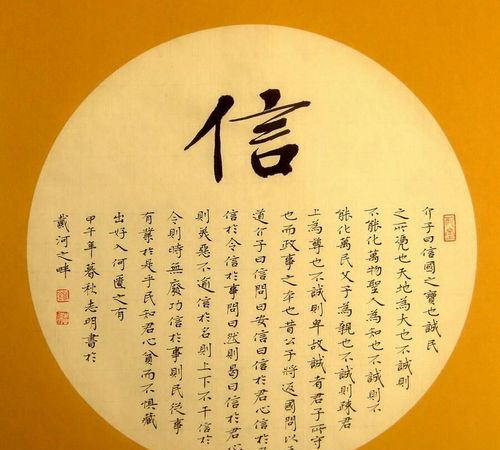 信
介子曰信國之寶也誠民
之所憑也天地為大也不誠則
不能化萬物聖人為知也不誠則不
能化萬民父子為親也不誠則疎君
上為尊也不誠則卑故誠者君子所守
也而政事之本也昔公子將返國問以
道介子曰信問曰安信曰信於君心信於
信於令信於事問曰然則曷曰信於君
則美惡不逾信於名則上下不干信於
令則時無廢功信於事則民從事
有業於是乎民知君心貧而不懼藏
出好入何匱之有
甲午年暮秋志玥書於
戴河之畔